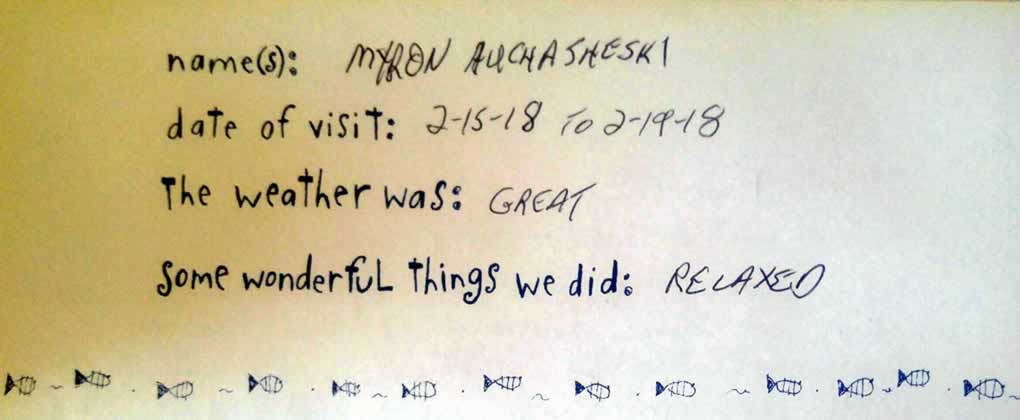 name(s): MYRON AUCHASHESKI
date of visit: 2-15-18 TO 2-19-18
The weather was: GREAT
some wonderful things we did: RELAXED